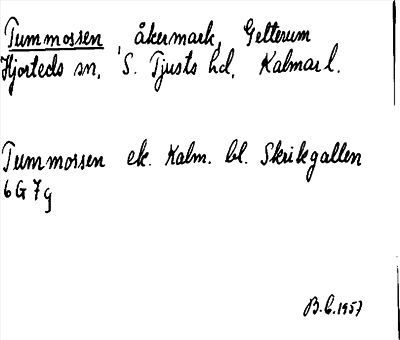 Tummossen, åkermark, Gelterum
Hjorteds sn, S. Tjusts hd, Kalmar l.
Tummossen ek. Kalm. bl. Skrikgallen
6 G 7 g
B.C. 1957